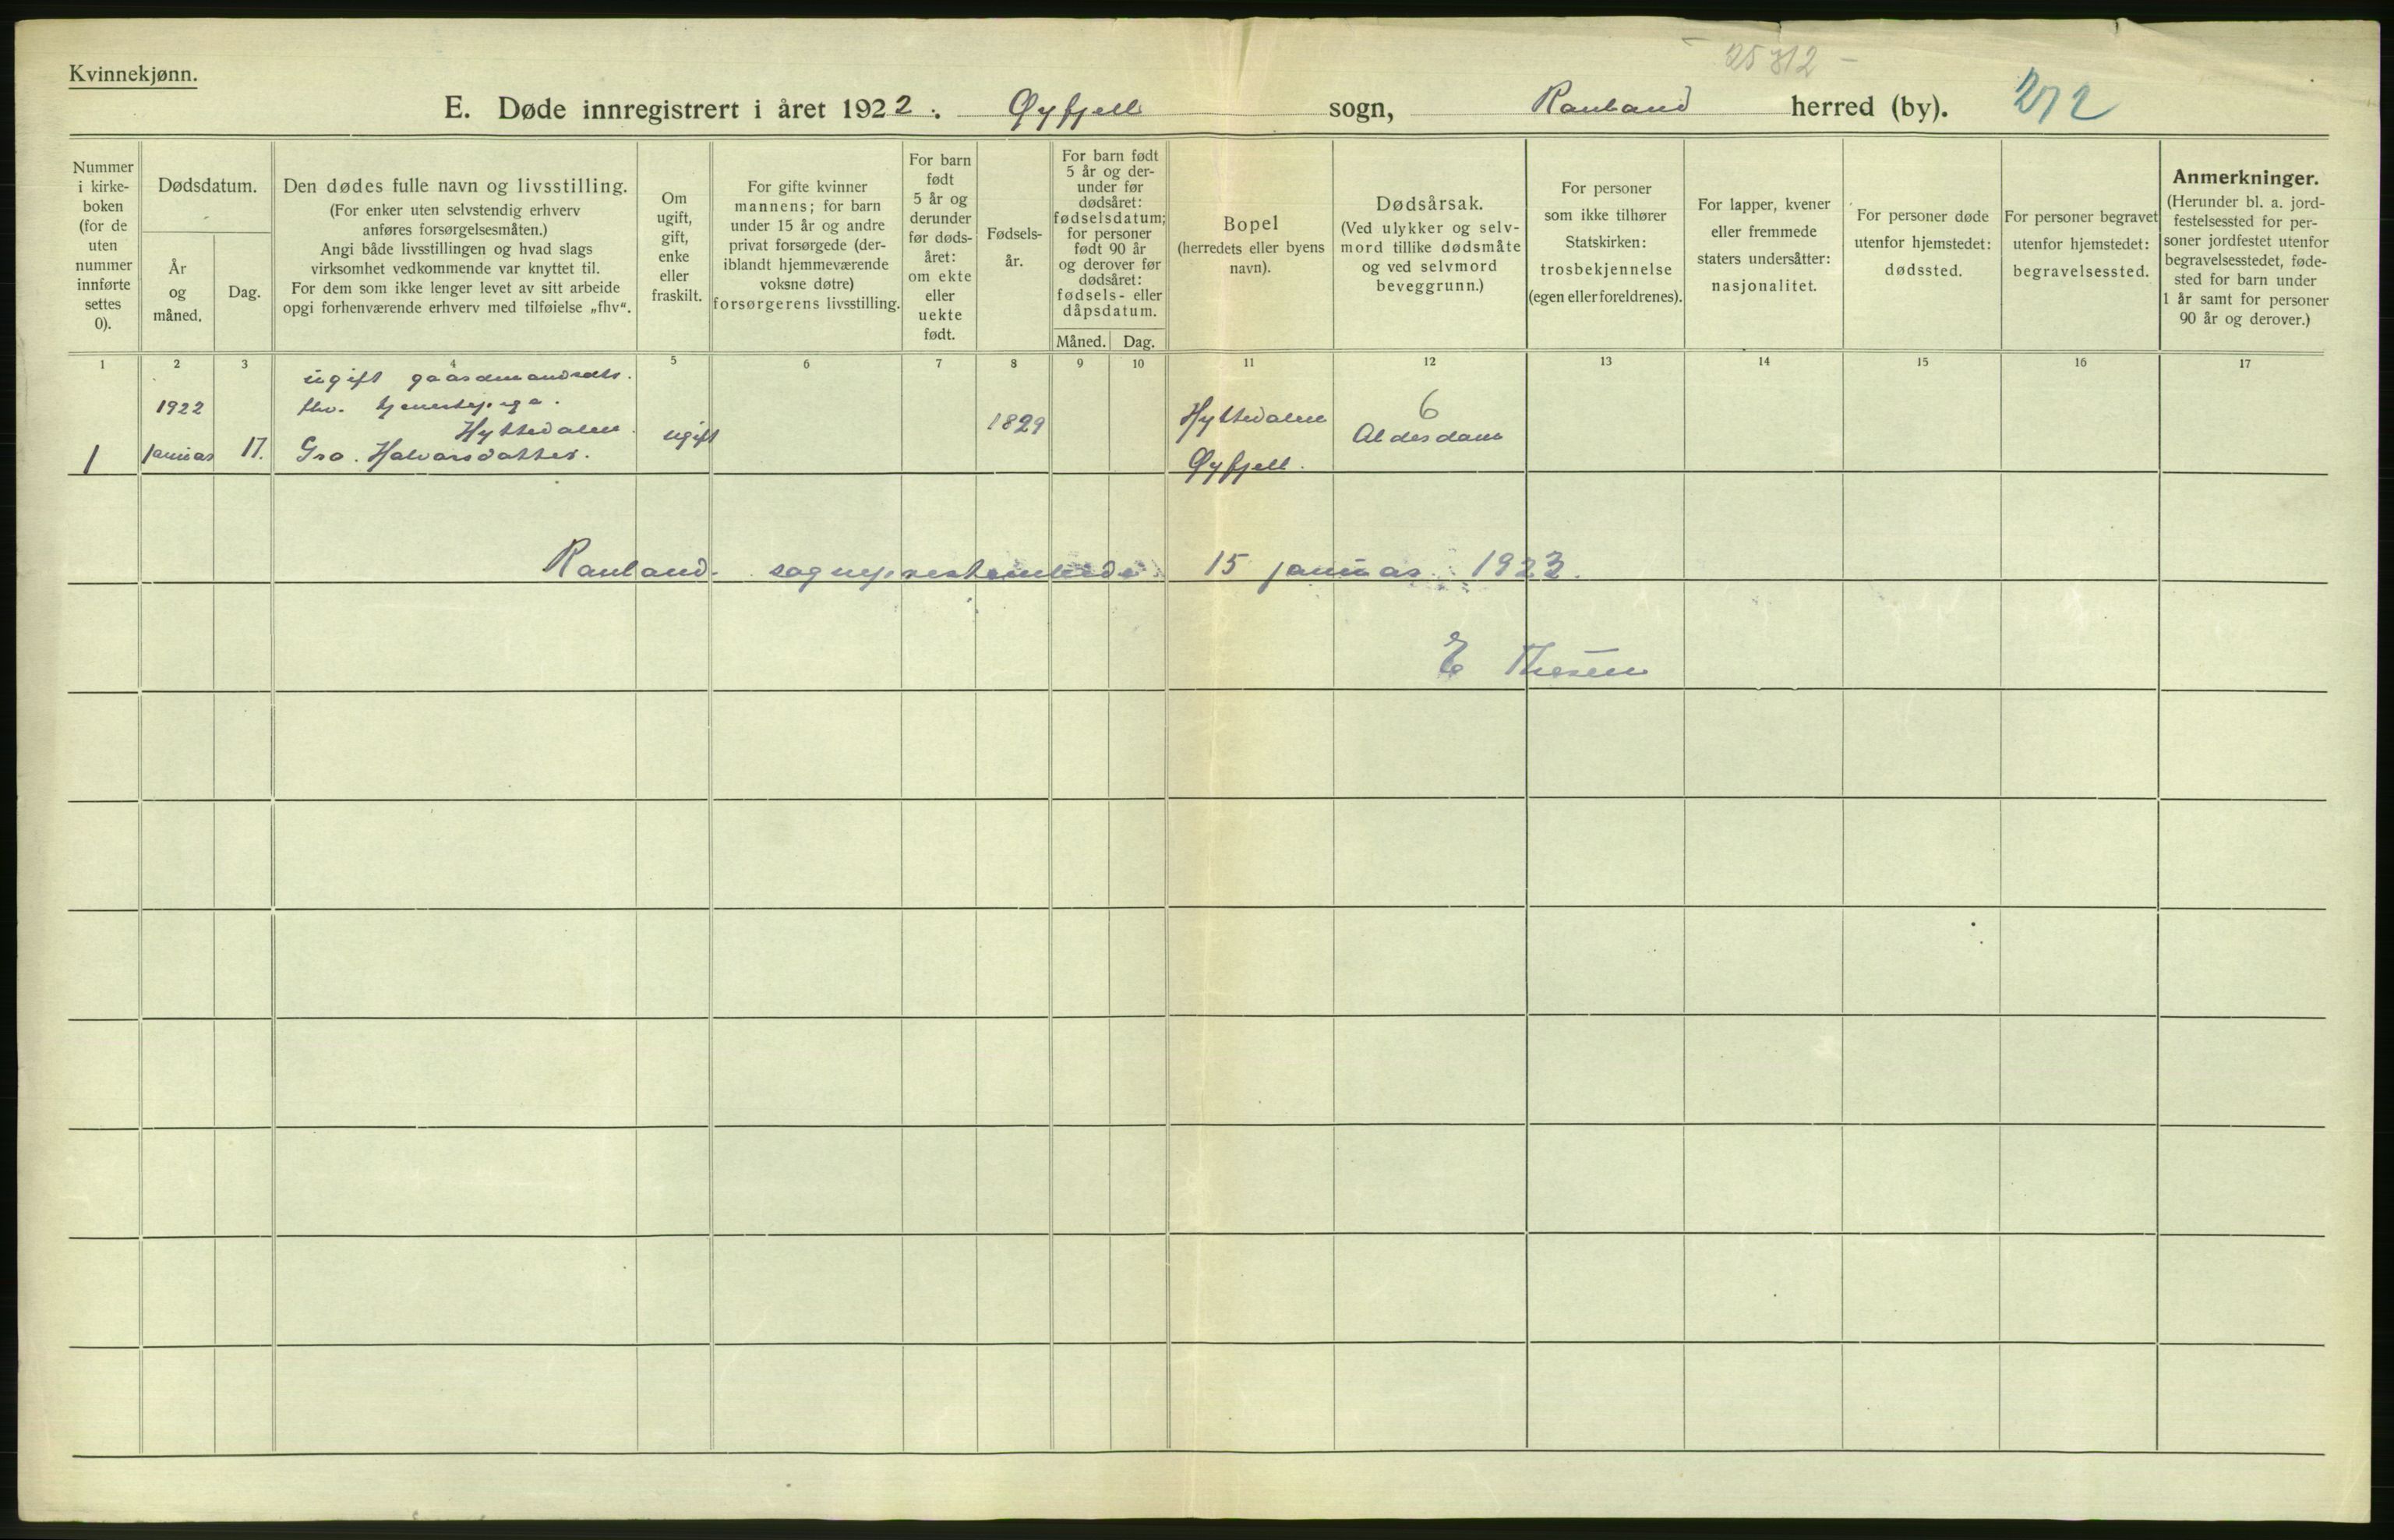 25312 -
Kvinnekjønn.
E. Døde innregistrert i året 1922. Øyfjell sogn, Rauland herred (by). 272
Nummer i kirke- boken (for de uten nummer innførte settes 0).
Dødsdatum.
År og måned.
Dag.
Den dødes fulle navn og livsstilling.
(For enker uten selvstendig erhverv
anføres forsørgelsesmåten.)
Angi både livsstillingen og hvad slags
virksomhet vedkommende var knyttet til.
For dem som ikke lenger levet av sitt arbeide
opgi forhenværende erhverv med tilføielse „fhv“.
Om ugift, gift, enke eller fraskilt.
For gifte kvinner
mannens; for barn
under 15 år og andre
privat forsørgede (der-
iblandt hjemmeværende
voksne døtre)
forsørgerens livsstilling.
For barn født 5 år og derunder før døds- året: om ekte eller uekte født.
Fødsels- år.
For barn født
5 år og der-
under før
dødsåret:
fødselsdatum;
for personer
født 90 år
og derover før
dødsåret:
fødsels- eller
dåpsdatum.
Måned. Dag.
Bopel
(herredets eller byens
navn).
Dødsårsak.
(Ved ulykker og selv-
mord tillike dødsmåte
og ved selvmord
beveggrunn.)
For personer
som ikke tilhører
Statskirken:
trosbekjennelse
(egen eller foreldrenes).
For lapper, kvener
eller fremmede
staters undersåtter:
nasjonalitet.
For personer døde
utenfor hjemstedet:
dødssted.
For personer begravet
utenfor hjemstedet:
begravelsessted.
Anmerkninger.
(Herunder bl. a. jord-
festelsessted for per-
soner jordfestet utenfor
begravelsesstedet, føde-
sted for barn under
1 år samt for personer
90 år og derover.)
1 2 3 4 5 6 7 8 9 10 11 12 13 14 15 16 17
ugift gaardmandsdtr.
1922 fhv. 1829 Hyttedalen 6
Hyttedalen ugift Aldersdom
1 januar 17. Gro Halvorsdatter. Øyfjell.
Rauland sogneprestembede 15 januar 1923.
E Thesen